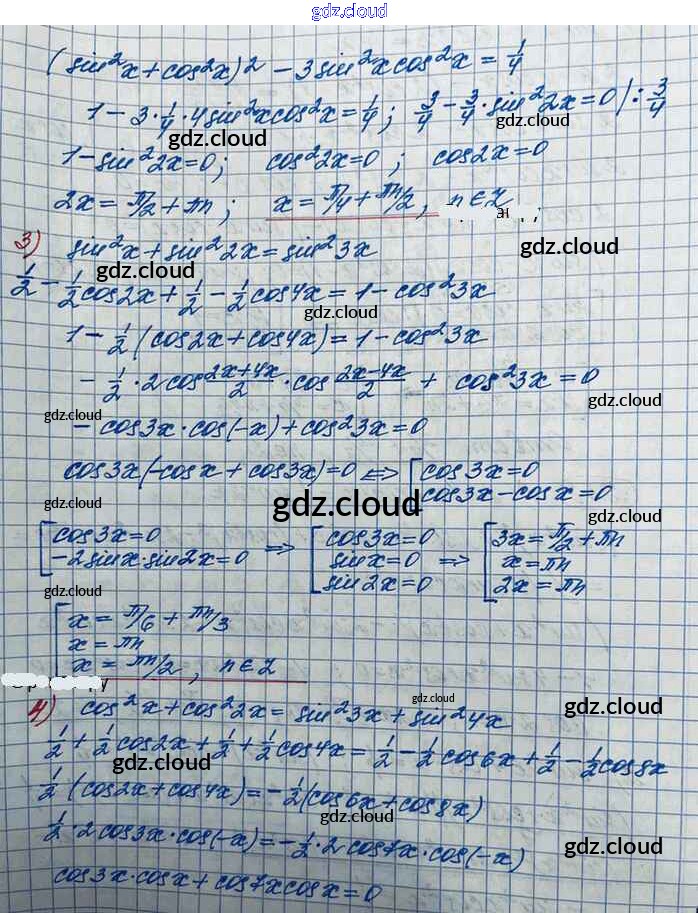 gdz.cloud
(sin²x+cos²x)2 − 3sin²xcos²x = 1/4
1 − 3·1/4·4sin²xcos²x = 1/4; 3/4 − 3/4·sin²2x = 0 | : 3/4
gdz.cloud gdz.cloud
1 − sin²2x = 0; cos²2x = 0; cos2x = 0
gdz.cloud gdz.cloud
2x = π/2 + πn; x = π/4 + πn/2, n ∈ Z
3) sin²x + sin²2x = sin²3x
gdz.cloud gdz.cloud
1/2 − 1/2cos2x + 1/2 − 1/2cos4x = 1 − cos²3x
gdz.cloud
1 − 1/2(cos2x + cos4x) = 1 − cos²3x
− 1/2·2cos (2x+4x)/2 · cos (2x−4x)/2 + cos²3x = 0
gdz.cloud gdz.cloud
− cos3x·cos(−x) + cos²3x = 0
cos3x(−cosx + cos3x) = 0 ⇔ [cos3x = 0
cos3x − cosx = 0
gdz.cloud gdz.cloud gdz.cloud
[cos3x = 0
−2sinx·sin2x = 0 ⇒ [cos3x = 0
sinx = 0
sin2x = 0 ⇒ [3x = π/2 + πn
x = πn
2x = πn
gdz.cloud gdz.cloud
[x = π/6 + πn/3
x = πn
x = πn/2, n ∈ Z
gdz.cloud
4) cos²x + cos²2x = sin²3x + sin²4x
gdz.cloud
1/2 + 1/2cos2x + 1/2 + 1/2cos4x = 1/2 − 1/2cos6x + 1/2 − 1/2cos8x
gdz.cloud gdz.cloud
1/2(cos2x + cos4x) = − 1/2(cos6x + cos8x)
gdz.cloud
1/2·2cos3x·cos(−x) = − 1/2·2cos7x·cos(−x)
gdz.cloud
cos3x·cosx + cos7xcosx = 0